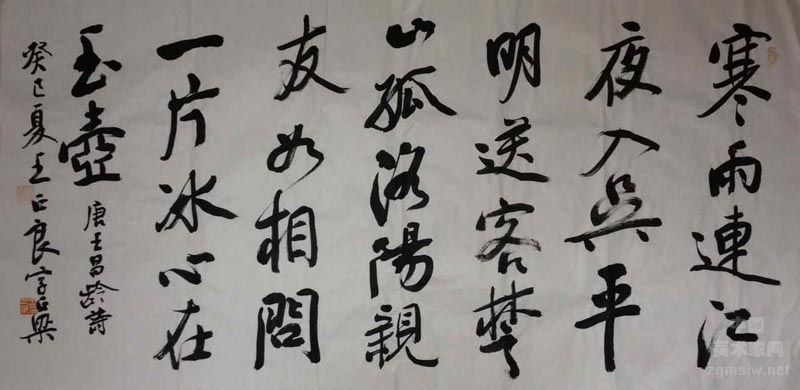 寒雨連江
夜入吳平
明送客楚
山孤洛陽親
友如相問
一片冰心在
玉壺
唐王昌齡詩
癸巳夏王正良字
美术家网
zgmsjw.net